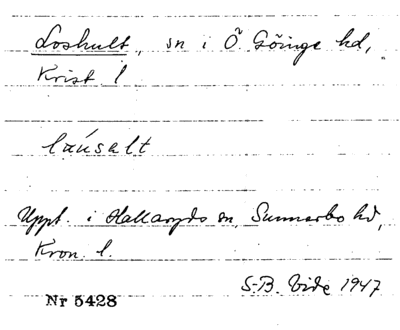 Loshult, sn i Ö. Göinge hd,
Krist l
laúsalt
Uppt. i Hallaryds sn, Sunnerbo hd,
Kron. l.
S-B. Vide 1947
Nr 5428